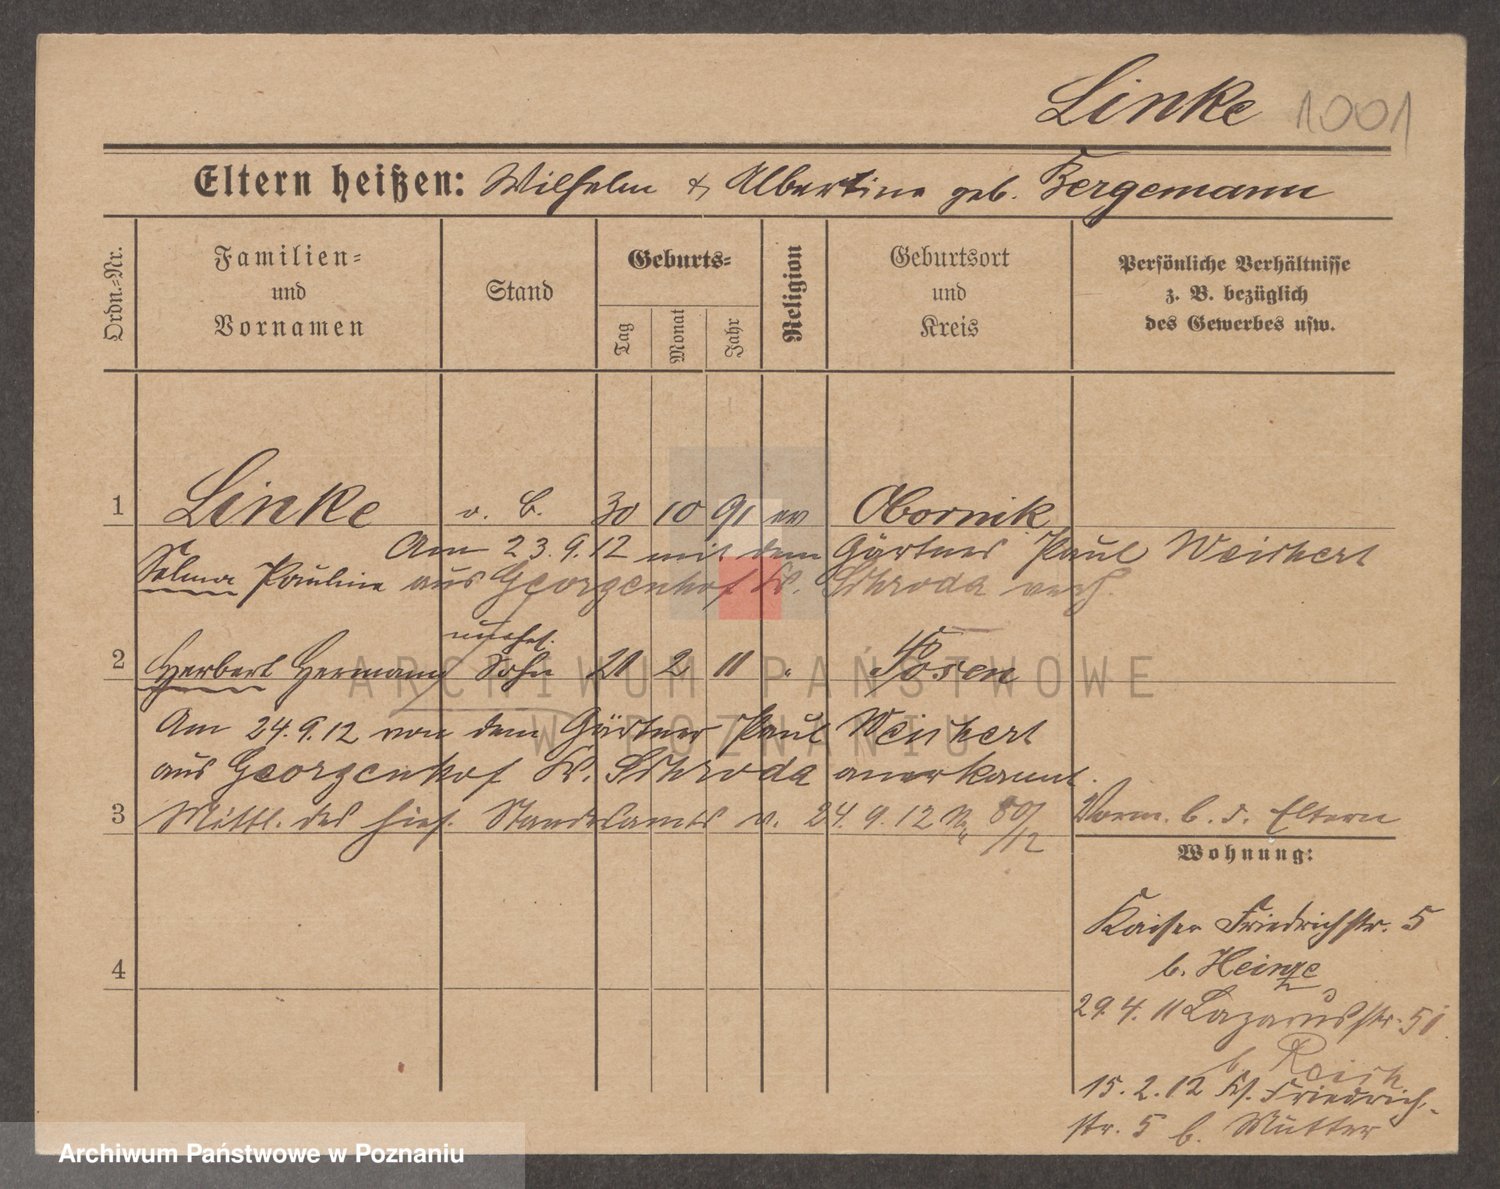 Linke 1001
Eltern heißen: Wilhelm & Albertine geb. Bergemann
Ordn.-Nr.
Familien- und Vornamen
Stand
Geburts-
Tag
Monat
Jahr
Religion
Geburtsort und Kreis
Persönliche Verhältnisse z. B. bezüglich des Gewerbes usw.
1 Linke o. B. 30 10 91 ev Obornik
Am 23.9.12 mit dem Gärtner Paul Weichert
Selma Pauline aus Georgenhof Kr. Schroda verh.
unehel.
2 Herbert Hermann Sohn 21 2 11 " Posen
Am 24.9.12 von dem Gärtner Paul Weichert
aus Georgenhof Kr. Schroda anerkannt.
3 Mittl. des hies. Standesamts v. 24.9.12 N. 80/12
Vorm. b. d. Eltern
Wohnung:
Kaiser Friedrichstr. 5
b. Heinze
29.4.11 Lazarusstr. 5
b.
15.2.12 Ks. Friedrich-
str. 5 b. Mutter
4
ARCHIWUM PAŃSTWOWE
W POZNANIU
Archiwum Państwowe w Poznaniu